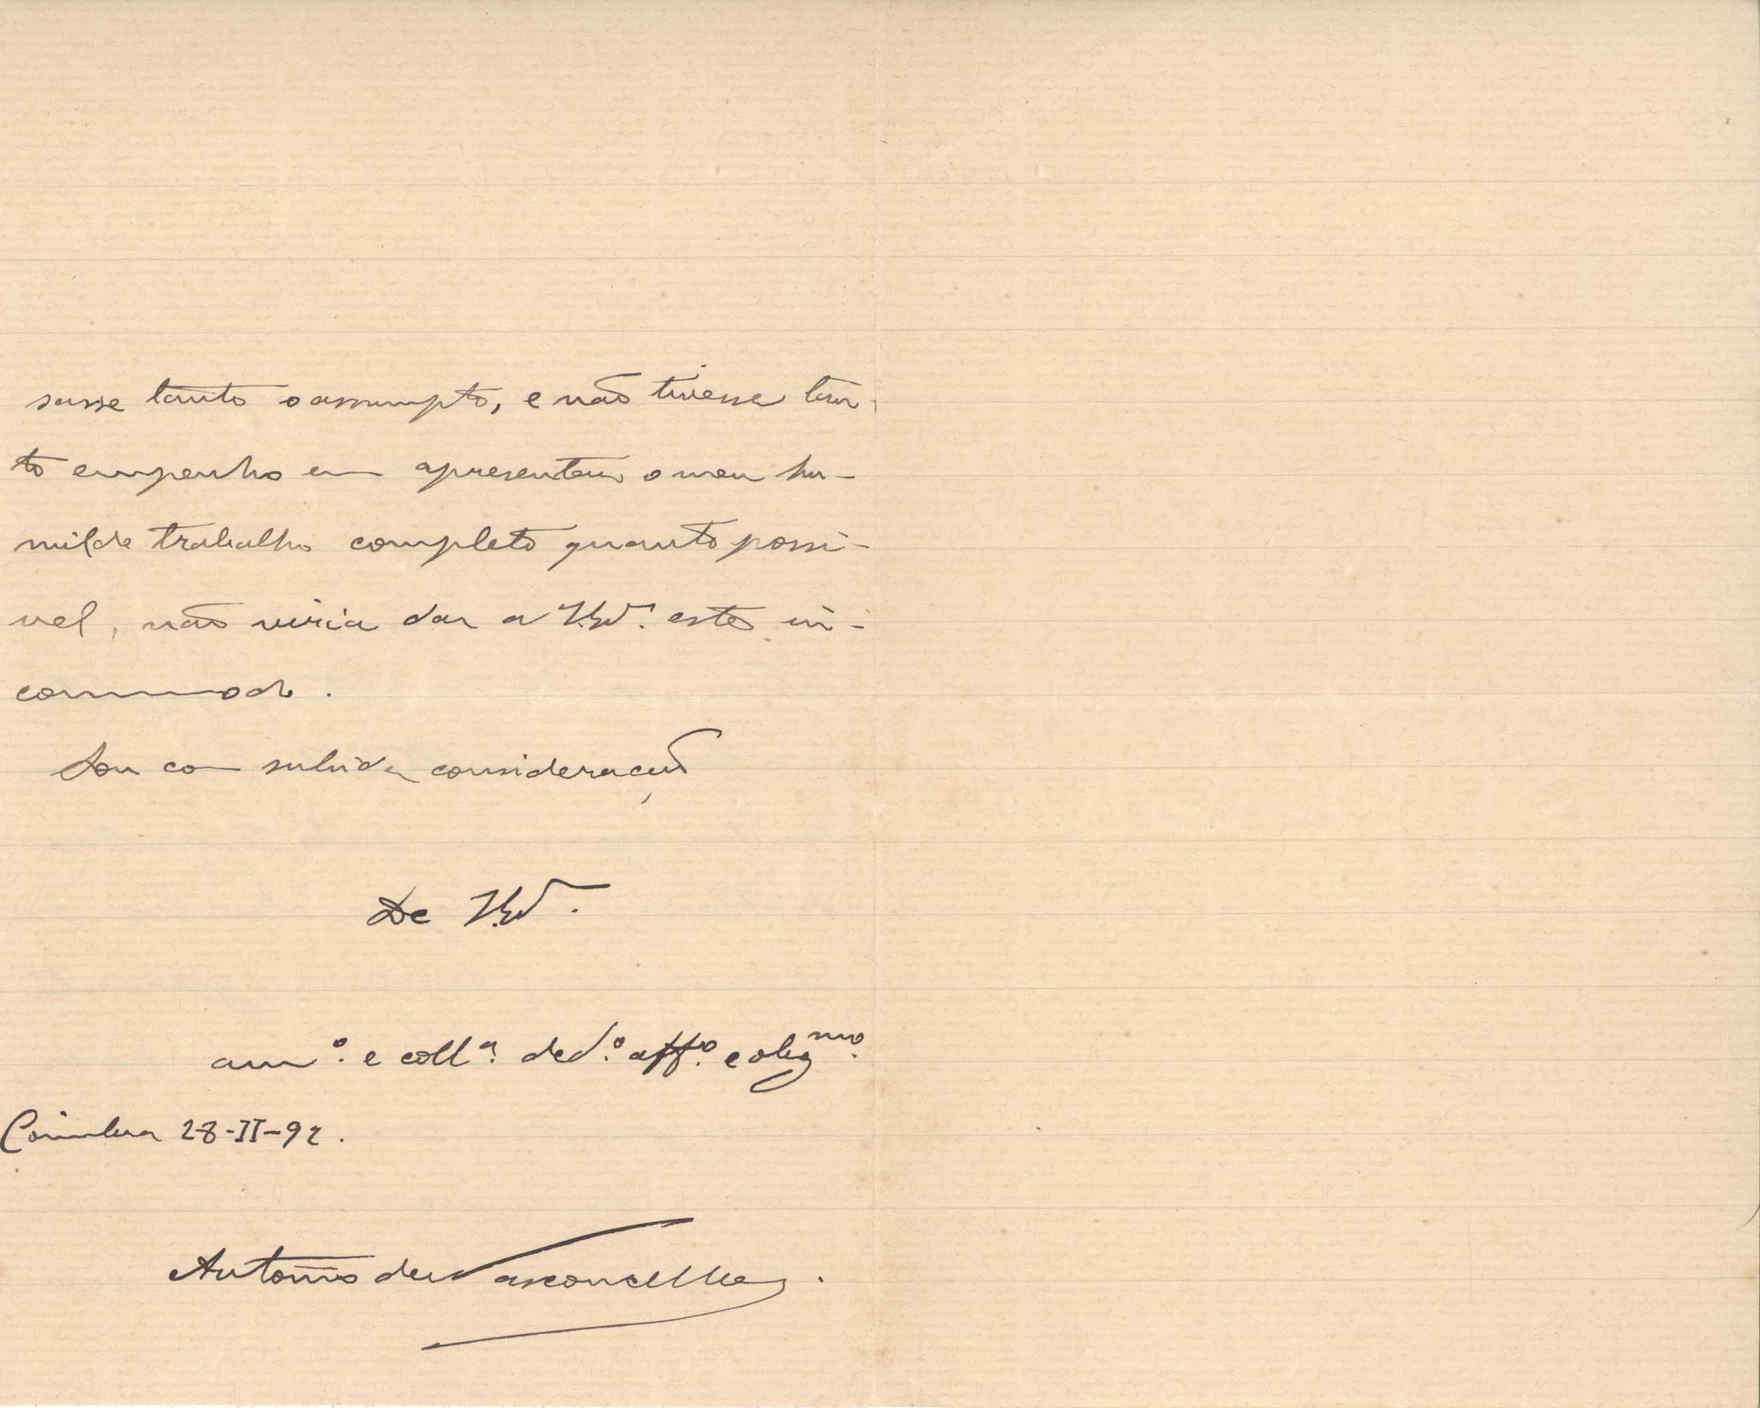 sasse tanto o assumpto, e não tivesse tan-
to empenho em apresentar o meu hu-
milde trabalho completo quanto possi-
vel, não viria dar a V. este in-
commodo.
Sou com subida consideração
De V.
am.º e coll.ª ded.º aff.º e obrg.mo
Coimbra 28-II-92.
Antonio de Vasconcellos.